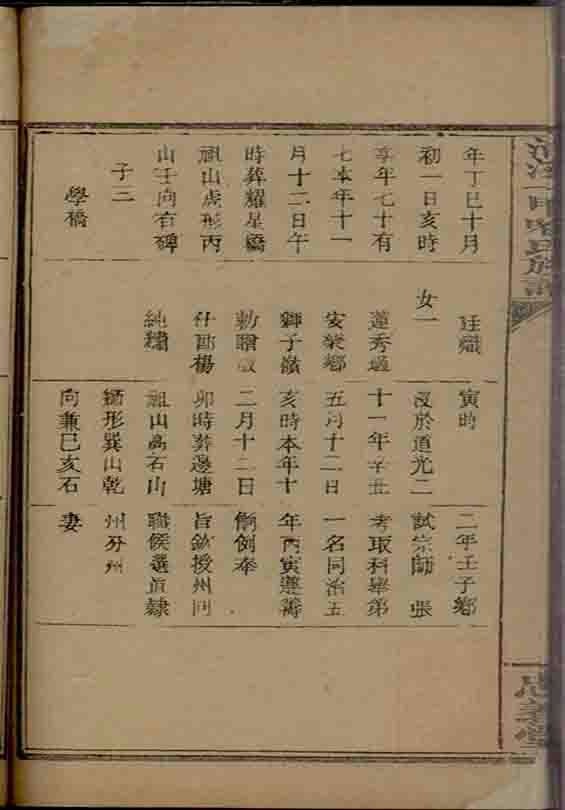 年丁巳十月
初一日亥時
享年七十有
七本年十一
月十二日午
時葬耀星橋
祖山虎形丙
山壬向有碑
子三
學橋
廷熾
女一
蓮秀適
安樂鄉
獅子嶺
勅贈
仕郎楊
純繡
寅時
歿於道光二
十一年辛丑
五月十二日
亥時本年十
二月十二日
卯時葬邊塘
祖山高石山
形巽山乾
向兼巳亥石
二年壬子鄉
試宗師 張
考取科舉第
一名同治五
年丙寅遵籌
餉例奉
旨欽授州同
職候選直隸
州分州
妻
氏族譜
忠義堂